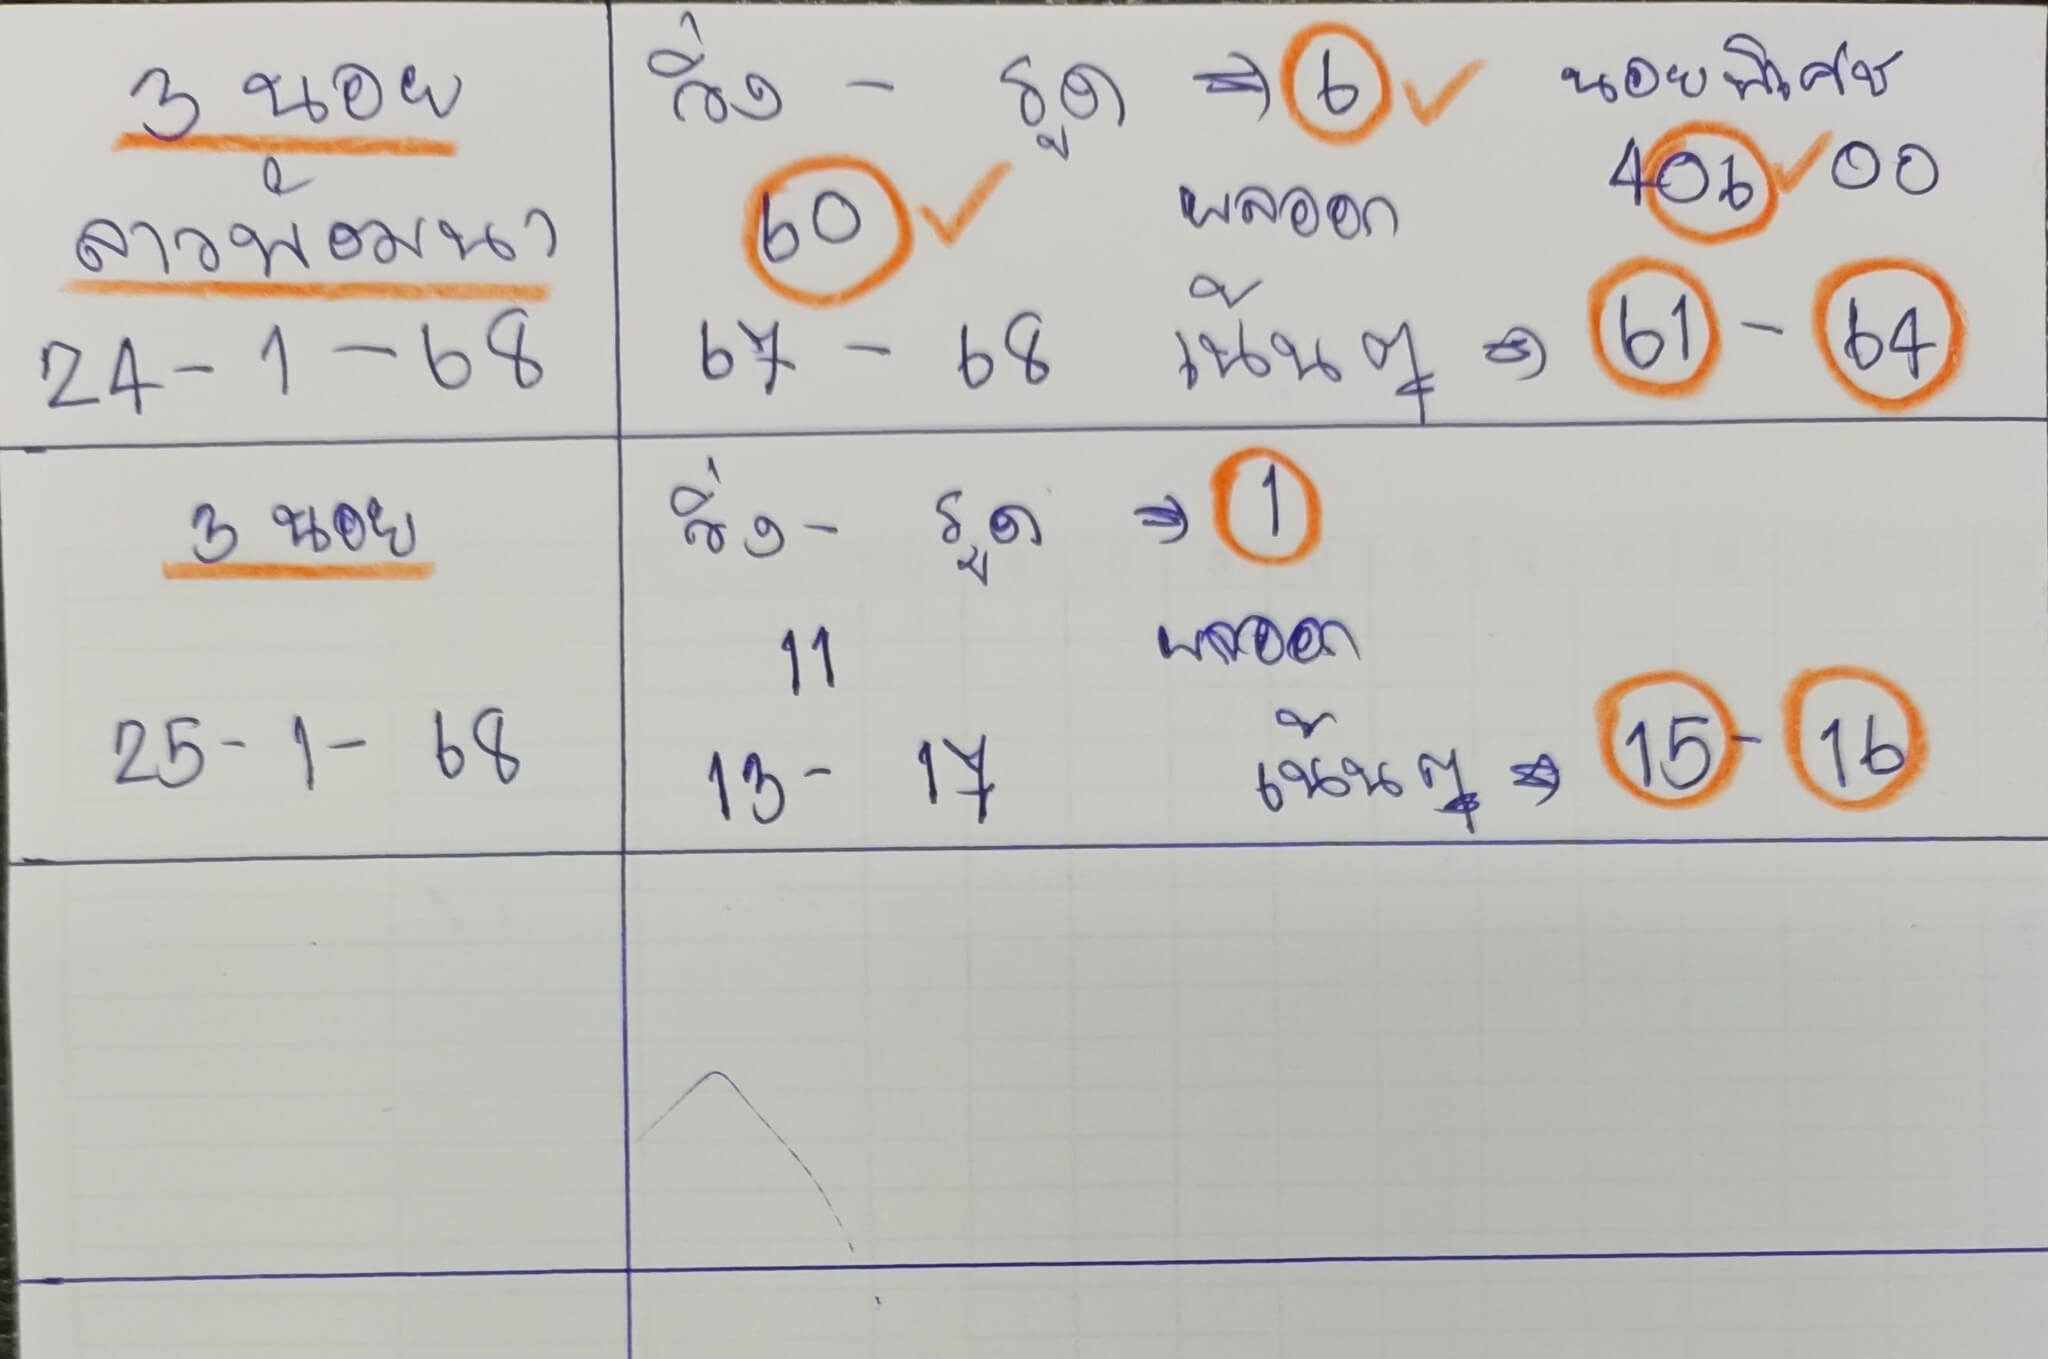 3 นอย
ลาวพัฒนา
24-1-68
วิ่ง - รูด ⇒ 6 ✓ นอยพิเศษ
60 ✓ ผลออก 406 ✓ 00
67 - 68 เน้นๆ ⇒ 61 - 64
3 นอย
25-1-68
วิ่ง - รูด ⇒ 1
11 ผลออก
13 - 17 เน้นๆ ⇒ 15 - 16